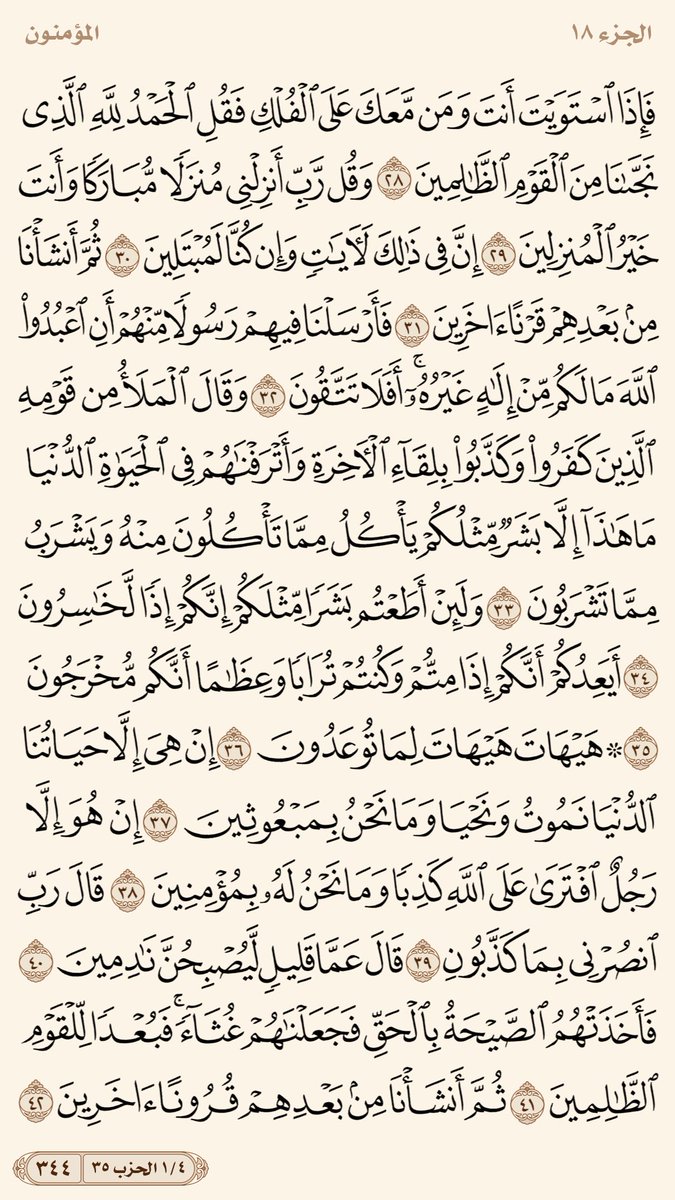 الجزء ١٨
المؤمنون
فَإِذَا ٱسۡتَوَيۡتَ أَنتَ وَمَن مَّعَكَ عَلَى ٱلۡفُلۡكِ فَقُلِ ٱلۡحَمۡدُ لِلَّهِ ٱلَّذِي
نَجَّىٰنَا مِنَ ٱلۡقَوۡمِ ٱلظَّٰلِمِينَ ٢٨ وَقُل رَّبِّ أَنزِلۡنِي مُنزَلٗا مُّبَارَكٗا وَأَنتَ
خَيۡرُ ٱلۡمُنزِلِينَ ٢٩ إِنَّ فِي ذَٰلِكَ لَأٓيَٰتٖ وَإِن كُنَّا لَمُبۡتَلِينَ ٣٠ ثُمَّ أَنشَأۡنَا
مِنۢ بَعۡدِهِمۡ قَرۡنًا ءَاخَرِينَ ٣١ فَأَرۡسَلۡنَا فِيهِمۡ رَسُولٗا مِّنۡهُمۡ أَنِ ٱعۡبُدُواْ
ٱللَّهَ مَا لَكُم مِّنۡ إِلَٰهٍ غَيۡرُهُۥٓۚ أَفَلَا تَتَّقُونَ ٣٢ وَقَالَ ٱلۡمَلَأُ مِن قَوۡمِهِ
ٱلَّذِينَ كَفَرُواْ وَكَذَّبُواْ بِلِقَآءِ ٱلۡأٓخِرَةِ وَأَتۡرَفۡنَٰهُمۡ فِي ٱلۡحَيَوٰةِ ٱلدُّنۡيَا
مَا هَٰذَآ إِلَّا بَشَرٞ مِّثۡلُكُمۡ يَأۡكُلُ مِمَّا تَأۡكُلُونَ مِنۡهُ وَيَشۡرَبُ
مِمَّا تَشۡرَبُونَ ٣٣ وَلَئِنۡ أَطَعۡتُم بَشَرٗا مِّثۡلَكُمۡ إِنَّكُمۡ إِذٗا لَّخَٰسِرُونَ
٣٤ أَيَعِدُكُمۡ أَنَّكُمۡ إِذَا مِتُّمۡ وَكُنتُمۡ تُرَابٗا وَعِظَٰمًا أَنَّكُم مُّخۡرَجُونَ
٣٥ ۞ هَيۡهَاتَ هَيۡهَاتَ لِمَا تُوعَدُونَ ٣٦ إِنۡ هِيَ إِلَّا حَيَاتُنَا
ٱلدُّنۡيَا نَمُوتُ وَنَحۡيَا وَمَا نَحۡنُ بِمَبۡعُوثِينَ ٣٧ إِنۡ هُوَ إِلَّا
رَجُلٌ ٱفۡتَرَىٰ عَلَى ٱللَّهِ كَذِبٗا وَمَا نَحۡنُ لَهُۥ بِمُؤۡمِنِينَ ٣٨ قَالَ رَبِّ
ٱنصُرۡنِي بِمَا كَذَّبُونِ ٣٩ قَالَ عَمَّا قَلِيلٖ لَّيُصۡبِحُنَّ نَٰدِمِينَ ٤٠
فَأَخَذَتۡهُمُ ٱلصَّيۡحَةُ بِٱلۡحَقِّ فَجَعَلۡنَٰهُمۡ غُثَآءٗۚ فَبُعۡدٗا لِّلۡقَوۡمِ
ٱلظَّٰلِمِينَ ٤١ ثُمَّ أَنشَأۡنَا مِنۢ بَعۡدِهِمۡ قُرُونًا ءَاخَرِينَ ٤٢
١/٤ الحزب ٣٥
٣٤٤